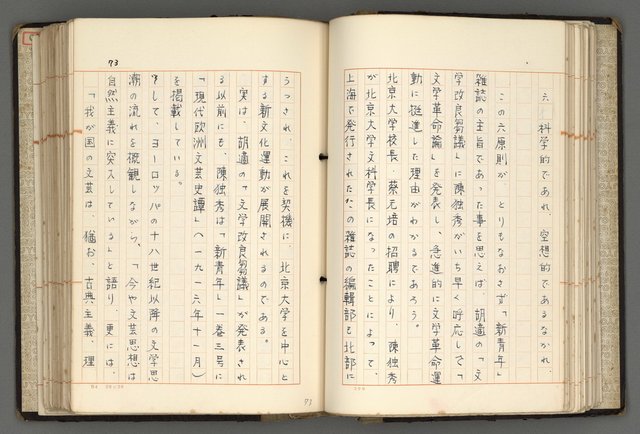 六、科学的であれ、空想的であるなかれ、
この六原則が、とりもなおさず「新青年」
雑誌の主旨であった事を思えば、胡適の「文
学改良芻議」に陳独秀がいち早く呼応して「
文学革命論」を発表し、急進的に文学革命運
動に挺進した理由がわかるであろう。
北京大学校長・蔡元培の招聘により、陳独秀
が北京大学文科学長になったことによって、
上海で発行されたこの雑誌の編輯部も北部に
73
うつされ、これを契機に、北京大学を中心と
する新文化運動が展開されるのである。
実は、胡適の「文学改良芻議」が発表され
る以前にも、陳独秀は「新青年」一巻三号に
「現代欧洲文芸史譚」(一九一六年十一月)
を掲載している。
そして、ヨーロッパの十八世紀以降の文学思
潮の流れを概観しながら、「今や文芸思想は
自然主義に突入している」と語り、更には、
「我が国の文芸は、猶お、古典主義、理
73